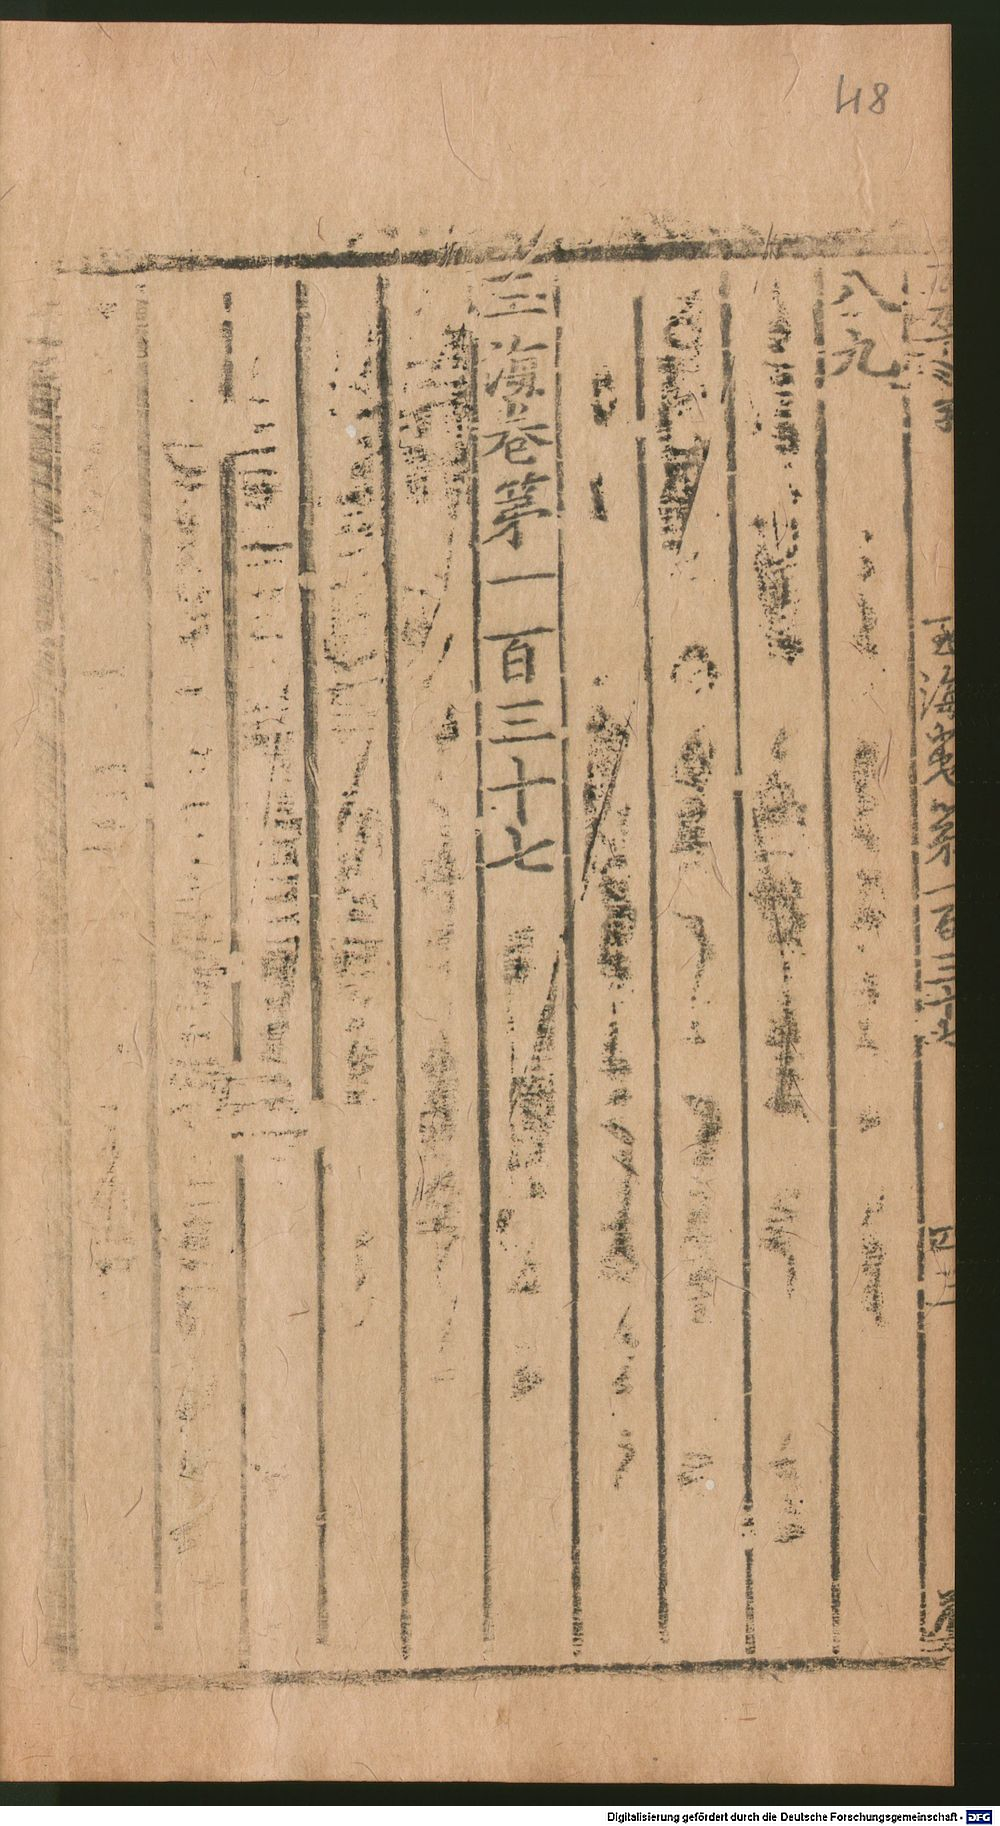 48
八九
玉海卷第一百三十七
玉海卷第一百三十七
Digitalisierung gefördert durch die Deutsche Forschungsgemeinschaft - DFG